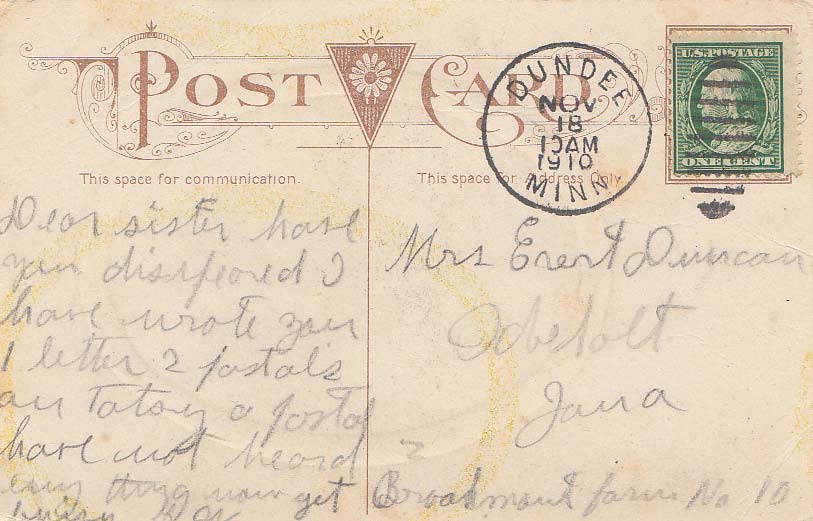 POST CARD
This space for communication.
This space for Address Only.
DUNDEE
NOV
18
10AM
1910
MINN.
U.S. POSTAGE
ONE CENT
Dear sister have
you disapeored I
have wrote you
1 letter 2 postals
an a postal
have not heard
eny thing now yet
Mrs Evert Duncan
Odebolt
Iowa
Brookmont farm No 10